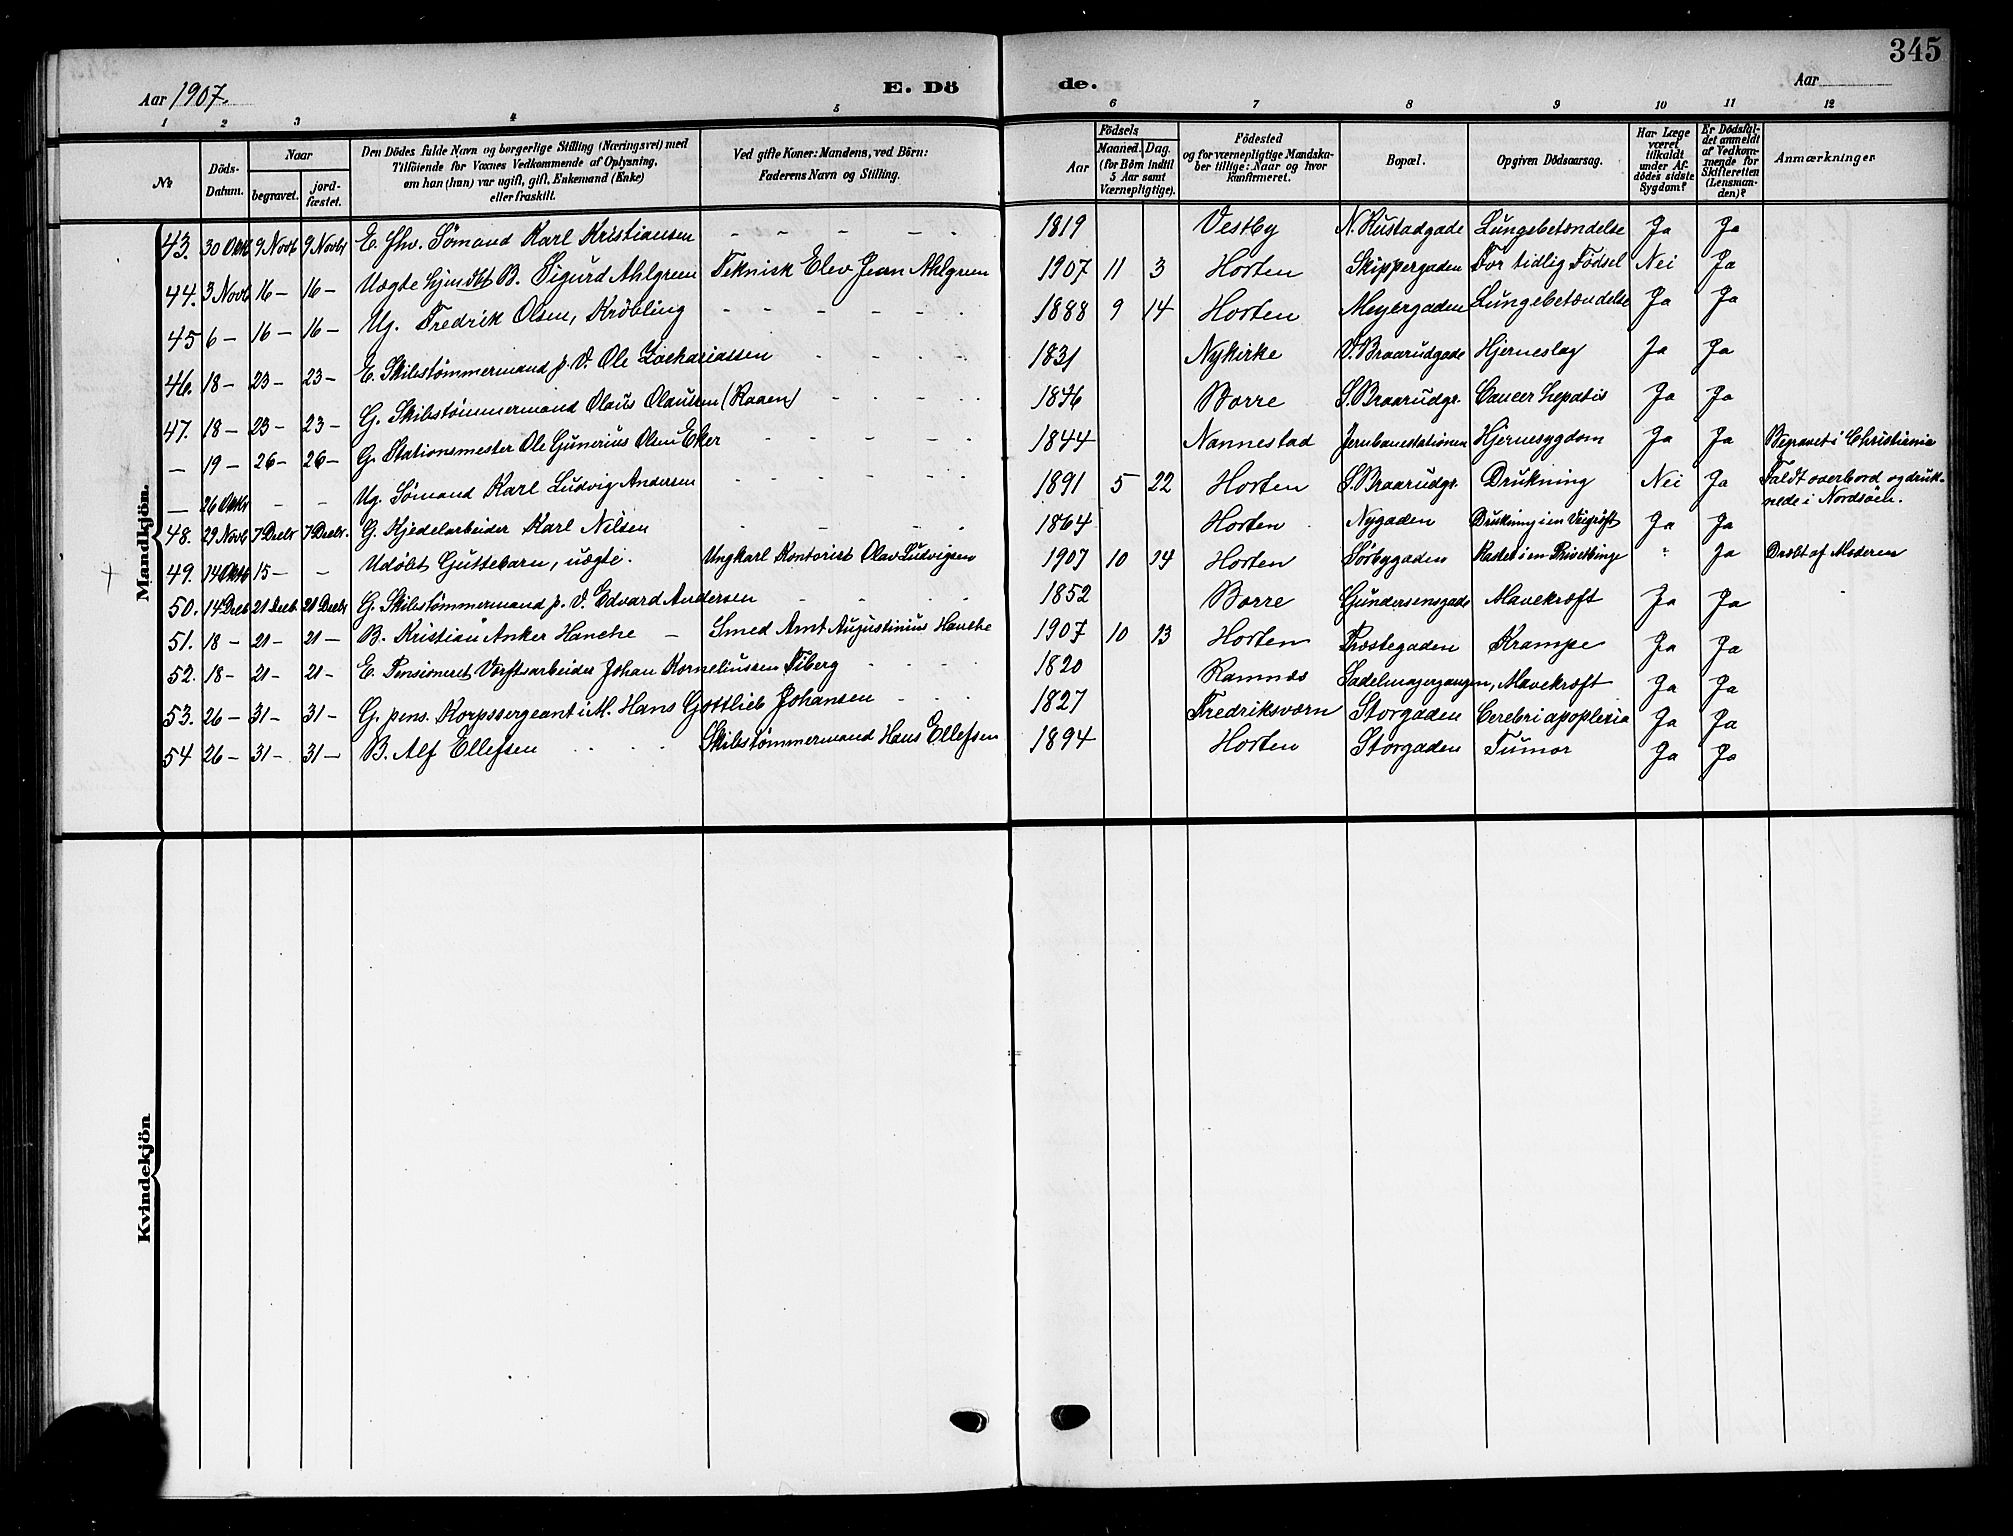 345
Aar 1907.
E. Dö
de.
Aar
1 2 3 4 5 6 7 8 9 10 11 12
№
Döds-Datum.
Naar
begravet.
jord-fæstet.
Den Dödes fulde Navn og borgerlige Stilling (Næringsvei) med
Tilföiende for Voxnes Vedkommende af Oplysning,
om han (hun) var ugift, gift, Enkemand (Enke)
eller fraskilt.
Ved gifte Koner: Mandens, ved Börn:
Faderens Navn og Stilling.
Födsels
Aar
Maaned. Dag.
(for Börn indtil
5 Aar samt
Værnepligtige).
Födested
og for værnepligtige Mandska-
ber tillige: Naar og hvor
konfirmeret.
Bopæl.
Opgiven Dödsaarsag.
Har Læge
været
tilkaldt
under Af-
dödes sidste
Sygdom?
Er Dödsfal-
det anmeldt
af Vedkom-
mende for
Skifteretten
(Lensman-
den)?
Anmærkninger
Mandkjön.
43. 30 Oktb 9 Novb 9 Novbr E. fhv. Sömand Karl Kristiansen - - - - - 1819 Vestby N. Rustadgade Lungebetændelse Ja Ja
44. 3 Novb 16 - 16 - Uægte hjmdbt B. Sigurd Ahlgreen Teknisk Elev Jean Ahlgreen 1907 11 3 Horten Skippergaden For tidlig Födsel Nei Ja
45 6 - 16 - 16 - Ug. Fredrik Olsen, Kröbling - - - - - 1888 9 14 Horten Meyergaden Lungebetændelse Ja Ja
46. 18 - 23 - 23 - E. Skibstömmermand p. V. Ole Zachariassen - - - - 1831 Nykirke V. Braarudgade Hjerneslag Ja Ja
47. 18 - 23 - 23 - G. Skibstömmermand Olaus Olausen (Raaen) - - - - Borre S. Braarudgr. Cancer hepatis Ja Ja
- 19 - 26 - 26 - G. Stationsmester Ole Gunerius Olsen Eker - - - - 1844 Nannestad Jernbanestationen Hjernesygdom Ja Ja Begravet i Christiania
- 26 Oktbr - - Ug. Sömand Karl Ludvig Andersen - - - - - 1891 5 22 Horten S. Braarudgr. Drukning Nei Ja Faldt overbord og druk-
nede i Nordsöen.
48. 29 Novb 7 Decbr 7 Decbr. G. Kjedelarbeider Karl Nilsen - - - - 1864 Horten Nygaden Drukning i en Veigröft Ja Ja
49. 14 Oktb 15 - - Udöbt Guttebarn, uægte. Ungkarl Kontorist Olav Ludvigsen 1907 10 14 Horten Sörbygaden Kastet i en Privetbinge " Ja Dræbt af Moderen
50. 14 Decb 21 Decb. 21 Decbr G. Skibstömmermand p. V. Edvard Andersen - - - - 1852 Borre Gundersensgade Mavekræft Ja Ja
51. 18 - 21 - 21 - B. Kristian Anker Hanche - Smed Arnt Augustinius Hanche 1907 10 13 Horten Præstegaden Krampe Ja Ja
52. 18 - 21 - 21 - E. Pensioneret Værftsarbeider Johan Korneliussen Fiberg - - - - 1820 Ramnæs Sadelmagergangen, Mavekræft Ja Ja
53. 26 - 31 - 31 - G. pens. Korpssergeant i M. Hans Gottlieb Johansen - - - 1827 Fredriksværn Storgaden Cerebri apoplexia Ja Ja
54 26 - 31 - 31 - B. Alf Ellefsen - - - - Skibstömmermand Hans Ellefsen 1894 Horten Storgaden Tumor Ja Ja
Kvindekjön